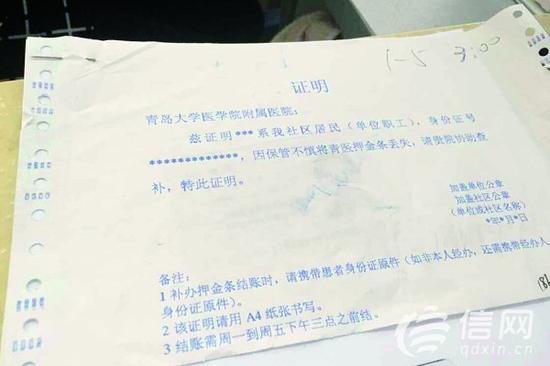 1-5 3:00
证明
青岛大学医学院附属医院：
兹证明***系我社区居民（单位职工），身份证号
*************，因保管不慎将青医押金条丢失，请贵院协助查
补，特此证明。
加盖单位公章
加盖社区公章
（单位或社区名称）
*年*月*日
备注：
1 补办押金条结账时，请携带患者身份证原件（如非本人经办，还需携带经办人
身份证原件）。
2 该证明请用 A4 纸张书写。
3 结账需周一到周五下午三点之前结。
信网
qdxin.cn